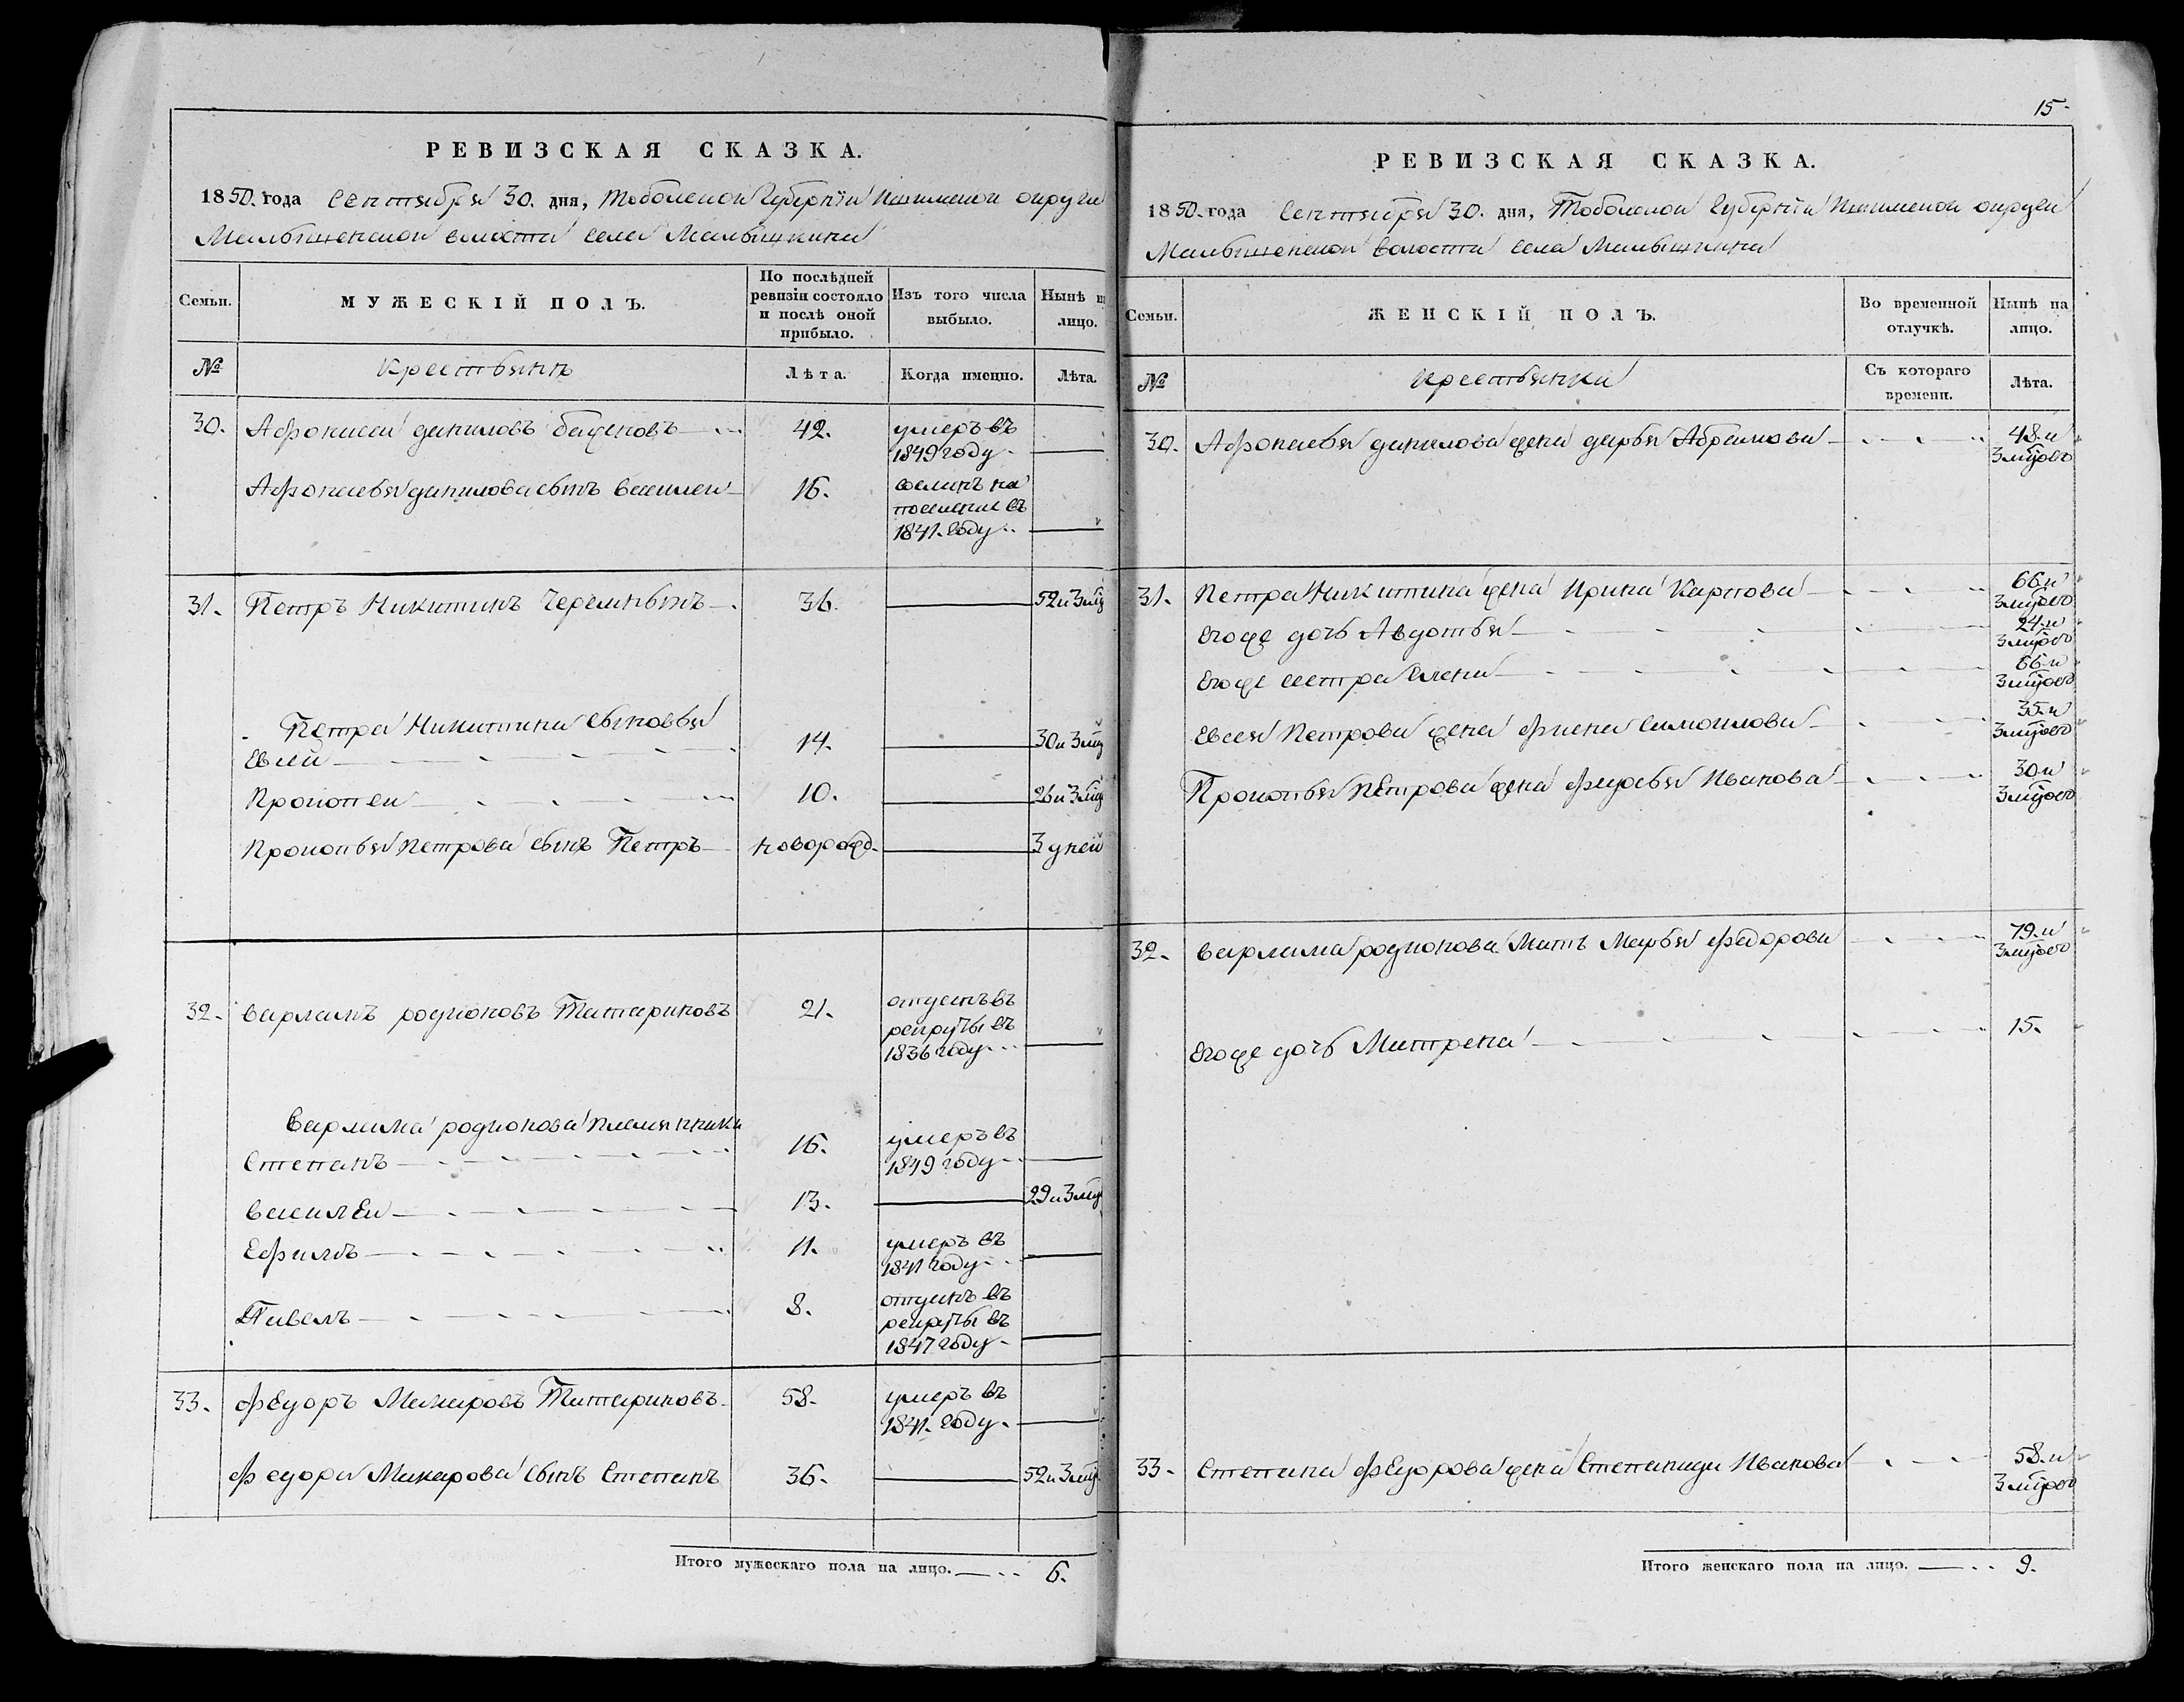 РЕВИЗСКАЯ СКАЗКА.
1850. года Сентября 30. дня, Тобольской Губерніи Ишимской округи
Малышенской волости села Малышкина
Семьи.
МУЖЕСКІЙ ПОЛЪ.
По послѣдней
ревизіи состояло
и послѣ оной
прибыло.
Изъ того числа
выбыло.
Нынѣ н
лицо.
№
Крестьянъ
Лѣта.
Когда именно.
Лѣта.
30. Афонасей даниловъ 42. умеръ въ
1849 году
Афонасья данилова сынъ василеи 16. сосланъ на
поселение въ
1841. году
31. Петръ Никитинъ 36. 52 и 3 мц
Петра Никитина сыновья
Евсей 14. 30 и 3 мц
Прокопеи 10. 26 и 3 мц
Прокопья Петрова сынъ Петръ новорожд. 3 дней
32. варламъ родионовъ Татариновъ 21. отданъ въ
рекруты въ
1836 году
варлама родионова племянники
Степанъ 16. умеръ въ
1849 году
василеи 13. 29 и 3 мц
Ефимъ 11. умеръ въ
1841 году
Павелъ 8. отданъ въ
рекруты въ
1847 году
33. Федоръ Макаровъ Татариновъ 58. умеръ въ
1841. году
Федора Макарова сынъ Степанъ 36. 52 и 3 мц
Итого мужескаго пола на лицо. 6.
15
РЕВИЗСКАЯ СКАЗКА.
1850. года Сентября 30. дня, Тобольской Губерніи Ишимской округи
Малышенской волости села Малышкина
Семьи.
ЖЕНСКІЙ ПОЛЪ.
Во временной
отлучкѣ.
Нынѣ на
лицо.
№
Крестьянки
Съ котораго
времени.
Лѣта.
30. Афонасья данилова жена дарья Абрамова 48. и
3 мцовъ
31. Петра Никитина жена Ирина Карпова 66. и
3 мцовъ
Егоже дочь Авдотья 24. и
3 мцовъ
Егоже сестра Елена 66 и
3 мцовъ
Евсея Петрова жена Фиена самоилова 35. и
3 мцовъ
Прокопья Петрова жена Иванова 30 и
3 мцовъ
32. варлама родионова Мать Марья Федорова 79. и
3 мцовъ
Егоже дочь Матрена 15.
33. Степана Федорова жена Степанида Иванова 58. и
3 мцовъ
Итого женскаго пола на лицо. 9.